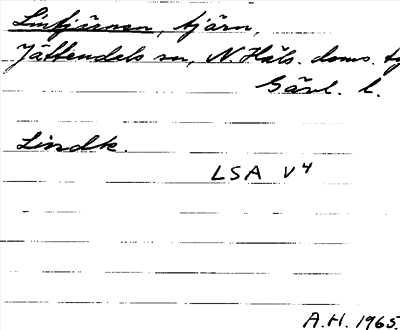 Lintjärnen, tjärn,
Jättendals sn, N. Häls. doms.
Gävl. l.
Lindk.
LSA V4
A.H. 1965.